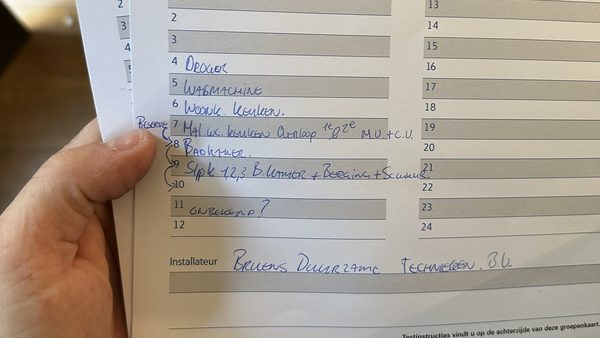 2
3
4
5
13
14
15
16
17
18
19
20
21
22
23
24
2
3
4 DROGER
5 WASMACHINE
6 WOONK. KEUKEN.
RESERVE
7 HAL WC. KEUKEN OVERLOOP 1e & 2e M.V. + C.V.
8 BADKAMER.
9 Slpk 1,2,3 B.KAMER + BERGING + SCHUUR.
10
11 ONBEKEND?
12
Installateur BRUENS DUURZAME TECHNIEKEN. B.V.
Testinstructies vindt u op de achterzijde van deze groepenkaart.